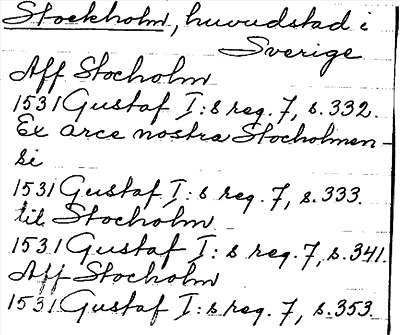 Stockholm, huvudstad i
Sverige
Aff Stocholm
1531 Gustaf I:s reg. 7, s. 332.
Ex arce nostra Stocholmen-
si
1531 Gustaf I:s reg. 7, s. 333.
til Stocholm
1531 Gustaf I:s reg. 7, s. 341.
Aff Stocholm
1531 Gustaf I:s reg. 7, s. 353.